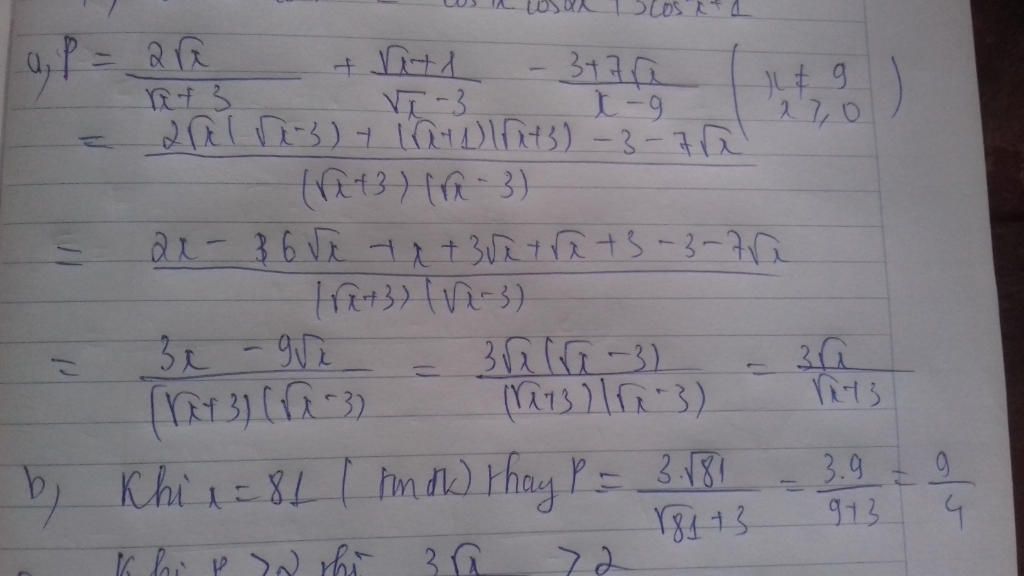 = cos x cos2x + 3cos²x + 1
a, P = 2√x / (√x + 3) + (√x + 1) / (√x - 3) - (3 + 7√x) / (x - 9) (x ≠ 9 x ≥ 0)
= (2√x(√x - 3) + (√x + 1)(√x + 3) - 3 - 7√x) / ((√x + 3)(√x - 3))
= (2x - 6√x + x + 3√x + √x + 3 - 3 - 7√x) / ((√x + 3)(√x - 3))
= (3x - 9√x) / ((√x + 3)(√x - 3)) = 3√x(√x - 3) / ((√x + 3)(√x - 3)) = 3√x / (√x + 3)
b, Khi x = 81 (tmđk) thay P = 3.√81 / (√81 + 3) = 3.9 / (9 + 3) = 9 / 4
Khi P > 2 thì 3√x > 2